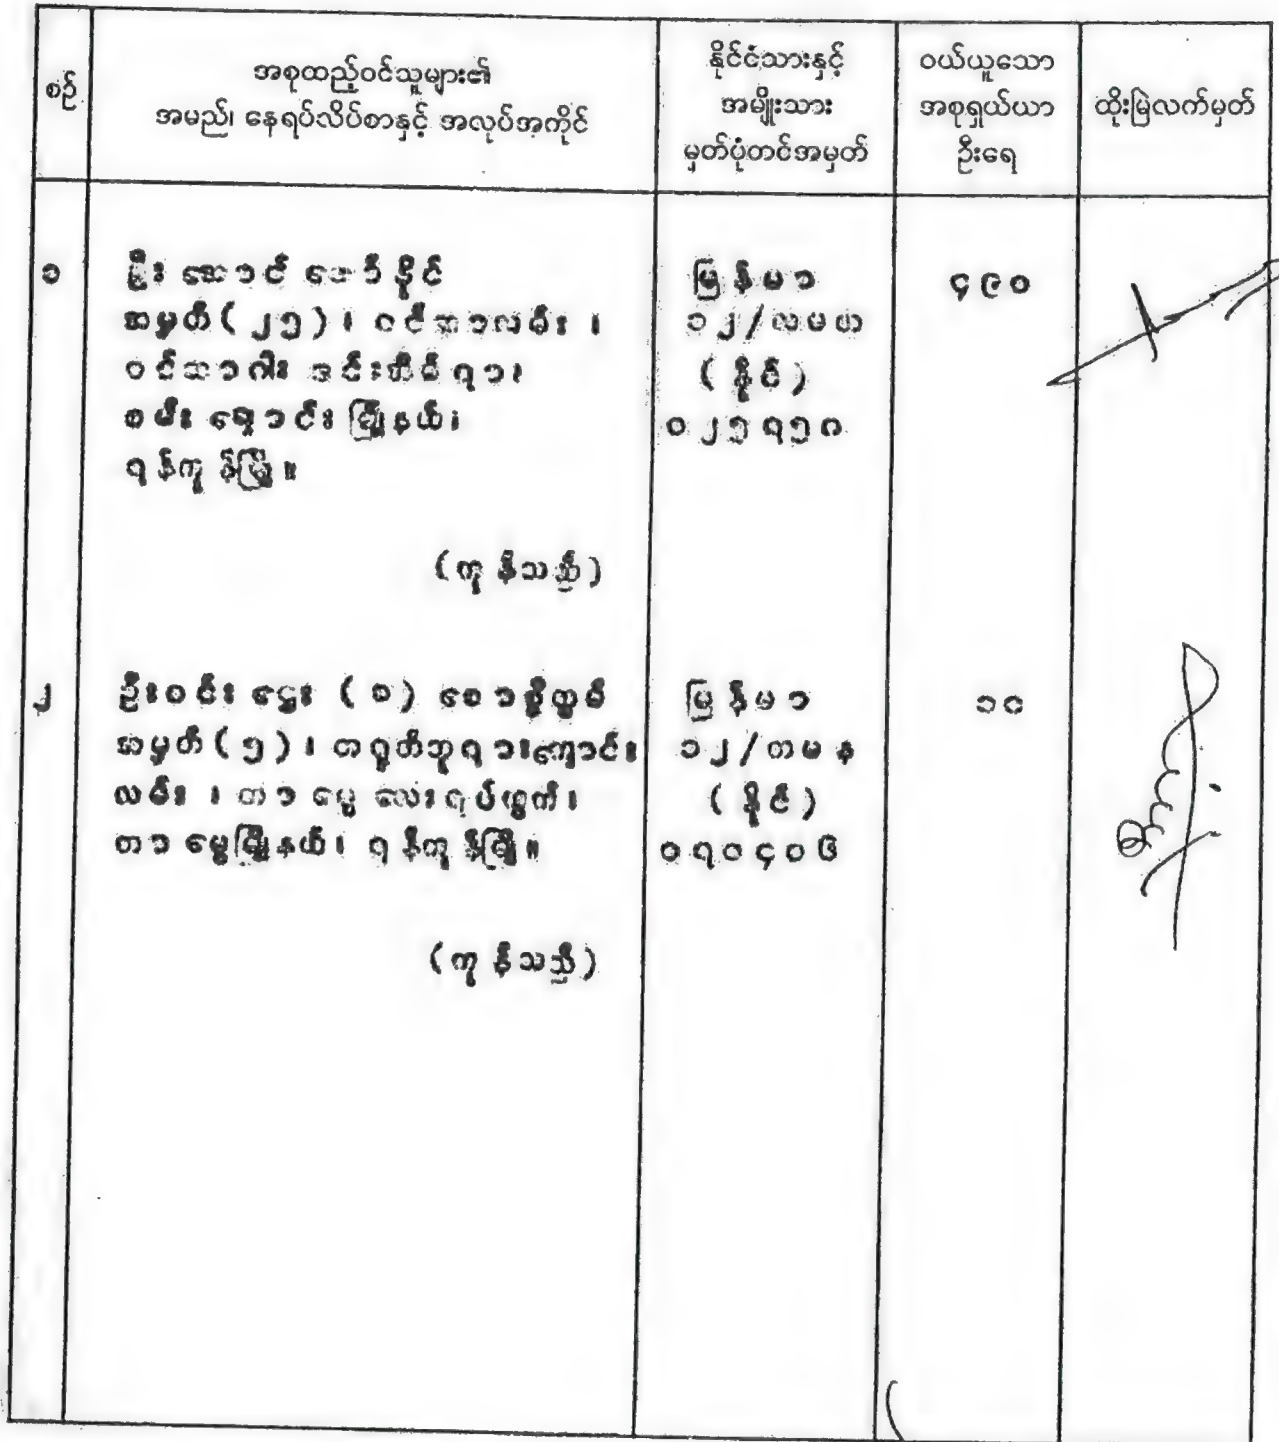 စဉ်
အစုထည့်ဝင်သူများ၏
အမည်၊ နေရပ်လိပ်စာနှင့် အလုပ်အကိုင်
နိုင်ငံသားနှင့်
အမျိုးသား
မှတ်ပုံတင်အမှတ်
ဝယ်ယူသော
အစုရှယ်ယာ
ဦးရေ
ထိုးမြဲလက်မှတ်
၁
ဦးအောင်ဇော်နိုင်
အမှတ်(၂၅)၊ ဝင်္ဒာလမ်း၊
စမ်းချောင်းမြို့နယ်၊
ရန်ကုန်မြို့။
(ကုန်သည်)
မြန်မာ
၁၂/လမယ
(နိုင်)
၀၂၅၇၅၈
၄၉၀
၂
ဦးဝင်းဌေး (ခ) စောဖို့ထွမ်
အမှတ်(၅)၊ တရုတ်ဘုရားကျောင်း
လမ်း၊ တာမွေလေးရပ်ကွက်၊
တာမွေမြို့နယ်၊ ရန်ကုန်မြို့။
(ကုန်သည်)
မြန်မာ
၁၂/တမန
(နိုင်)
၀၇၀၄၀၆
၁၀